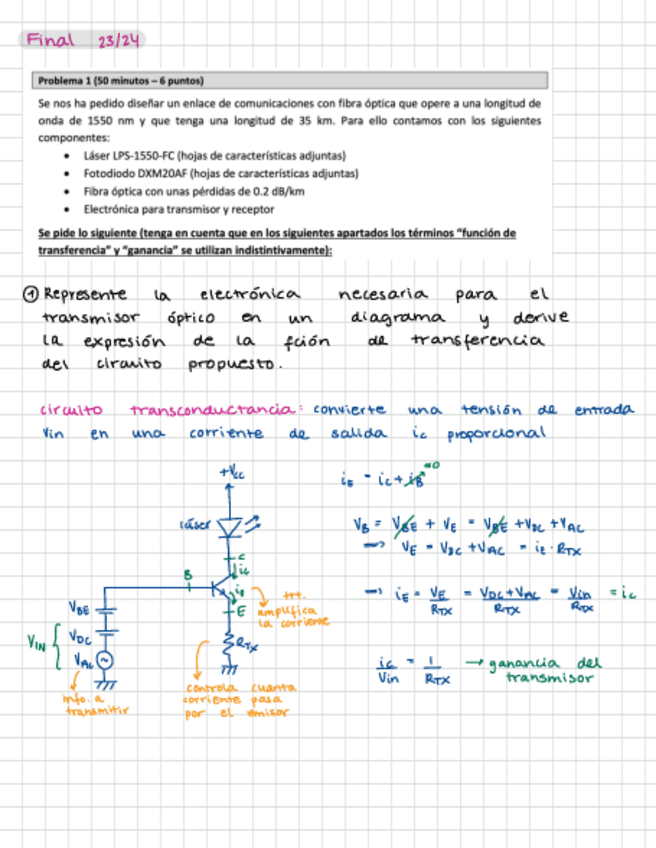 Final 23/24
Problema 1 (50 minutos – 6 puntos)
Se nos ha pedido diseñar un enlace de comunicaciones con fibra óptica que opere a una longitud de
onda de 1550 nm y que tenga una longitud de 35 km. Para ello contamos con los siguientes
componentes:
• Láser LPS-1550-FC (hojas de características adjuntas)
• Fotodiodo DXM20AF (hojas de características adjuntas)
• Fibra óptica con unas pérdidas de 0.2 dB/km
• Electrónica para transmisor y receptor
Se pide lo siguiente (tenga en cuenta que en los siguientes apartados los términos "función de
transferencia" y "ganancia" se utilizan indistintivamente):
① Represente la electrónica necesaria para el
transmisor óptico en un diagrama y derive
la expresión de la fción de transferencia
del circuito propuesto.
circuito transconductancia: convierte una tensión de entrada
Vin en una corriente de salida ic proporcional
+Vcc
láser
C
ic
B
iE
E
trt.
amplifica
la corriente
RTX
VBE
VDC
VAC
VIN
info. a
transmitir
controla cuanta
corriente pasa
por el emisor
iE = ic + iB ≈0
VB = VBE + VE = VBE + VDC + VAC
→ VE = VDC + VAC = iE · RTX
→ iE = VE/RTX = VDC + VAC/RTX = Vin/RTX = ic
ic/Vin = 1/RTX → ganancia del
transmisor